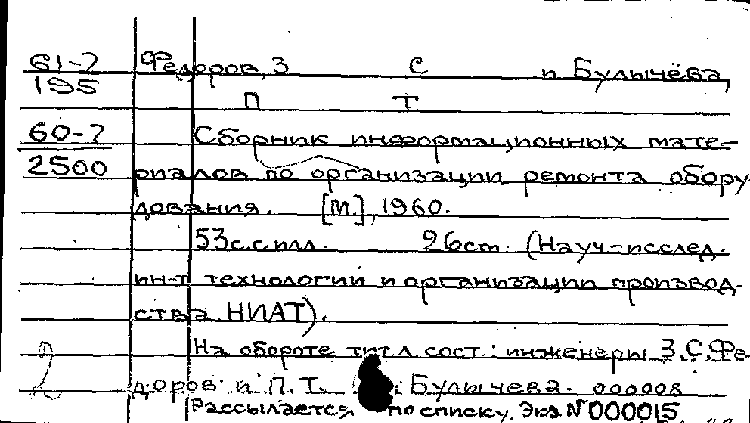 61-7
195
Федоров, З С и Булычёва,
П Т
60-7
2500
Сборник информационных мате-
риалов по организации ремонта обору
дования. [М.], 1960.
53с.с илл. 26см. (Науч-исслед.
ин-т технологии и организации производ-
ства НИАТ).
На обороте тит л сост: инженеры З.С.Фе-
доров и П.Т. Булычева. 000008
2
Рассылается по списку. Экз №000015